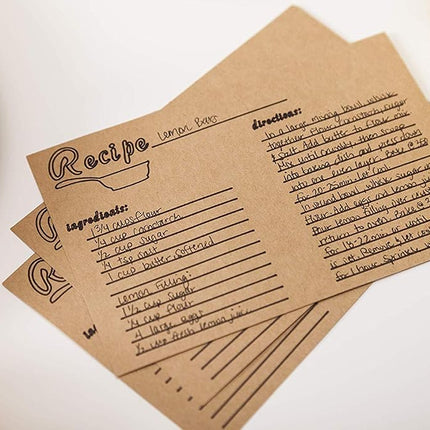 Recipe Lemon Bars
ingredients:
1 3/4 cups flour
1/4 cup cornstarch
1/2 cup sugar
1/4 tsp salt
1 cup butter softened
Lemon Filling:
1 1/2 cup sugar
1/4 cup flour
4 large eggs
1/2 cup fresh lemon juice
directions:
In a large mixing bowl whisk
together flour, cornstarch, sugar
& salt. Add butter to flour mix.
Mix until crumbly, then scrape
into baking dish and press down
into one even layer. Bake @ 350
for 20-25 min. Let cool.
In a small bowl whisk sugar &
flour. Add eggs and lemon j
Pour lemon filling over
return to oven. Bake @
for 18-22 min or until
is set. Remove & let
for 1 hour. Sprin
R
R